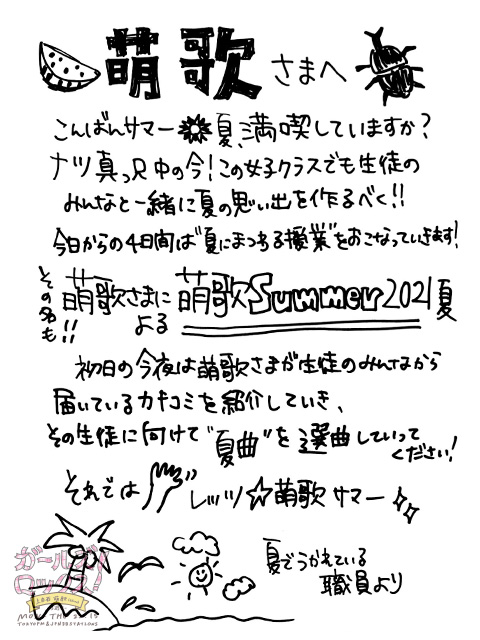 萌歌さまへ
こんばんサマー☀夏、満喫していますか?
ナツ真っ只中の今!この女子クラスでも生徒の
みんなと一緒に夏の思い出を作るべく!!
今日からの4日間は"夏にまつわる授業"をおこなっていきます!
その名も!!
萌歌さまによる
萌歌Summer2021夏
初日の今夜は萌歌さまが生徒のみんなから
届いているカキコミを紹介していき、
その生徒に向けて"夏曲"を選曲していって
ください!
それでは
レッツ☆萌歌サマー
夏でうかれている
職員より
ガールズ
ロックス!